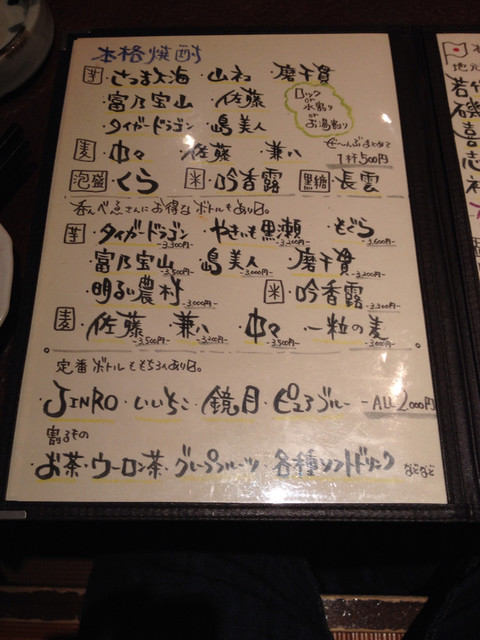 本格焼酎
芋 ・さつま大海 ・山ねこ ・磨千貫
・富乃宝山 ・佐藤
・タイガードラゴン ・島美人
ロック or 水割り or お湯割り
麦 ・中々 ・佐藤 ・兼八
ぜ〜んぶまとめて 1杯500円
泡盛 ・くら 米 ・吟香露 黒糖 ・長雲
呑んべえさんにお得なボトルもあり〼。
芋 ・タイガードラゴン -3,300円- ・やきいも黒瀬 -3,200円- ・もぐら -3,600円-
・富乃宝山 -3,500円- ・島美人 -3,000円- ・磨千貫 -3,200円-
・明るい農村 -3,000円- 米 ・吟香露 -3,200円-
麦 ・佐藤 -3,500円- ・兼八 -3,500円- ・中々 -3,200円- ・一粒の麦 -3,000円-
定番ボトルももちろんあり〼。
・JINRO ・いいちこ ・鏡月 ・ピュアブルー -ALL 2,000円
割るもの
・お茶・ウーロン茶・グレープフルーツ・各種ソフトドリンク などなど
地元
若
磯
喜
志